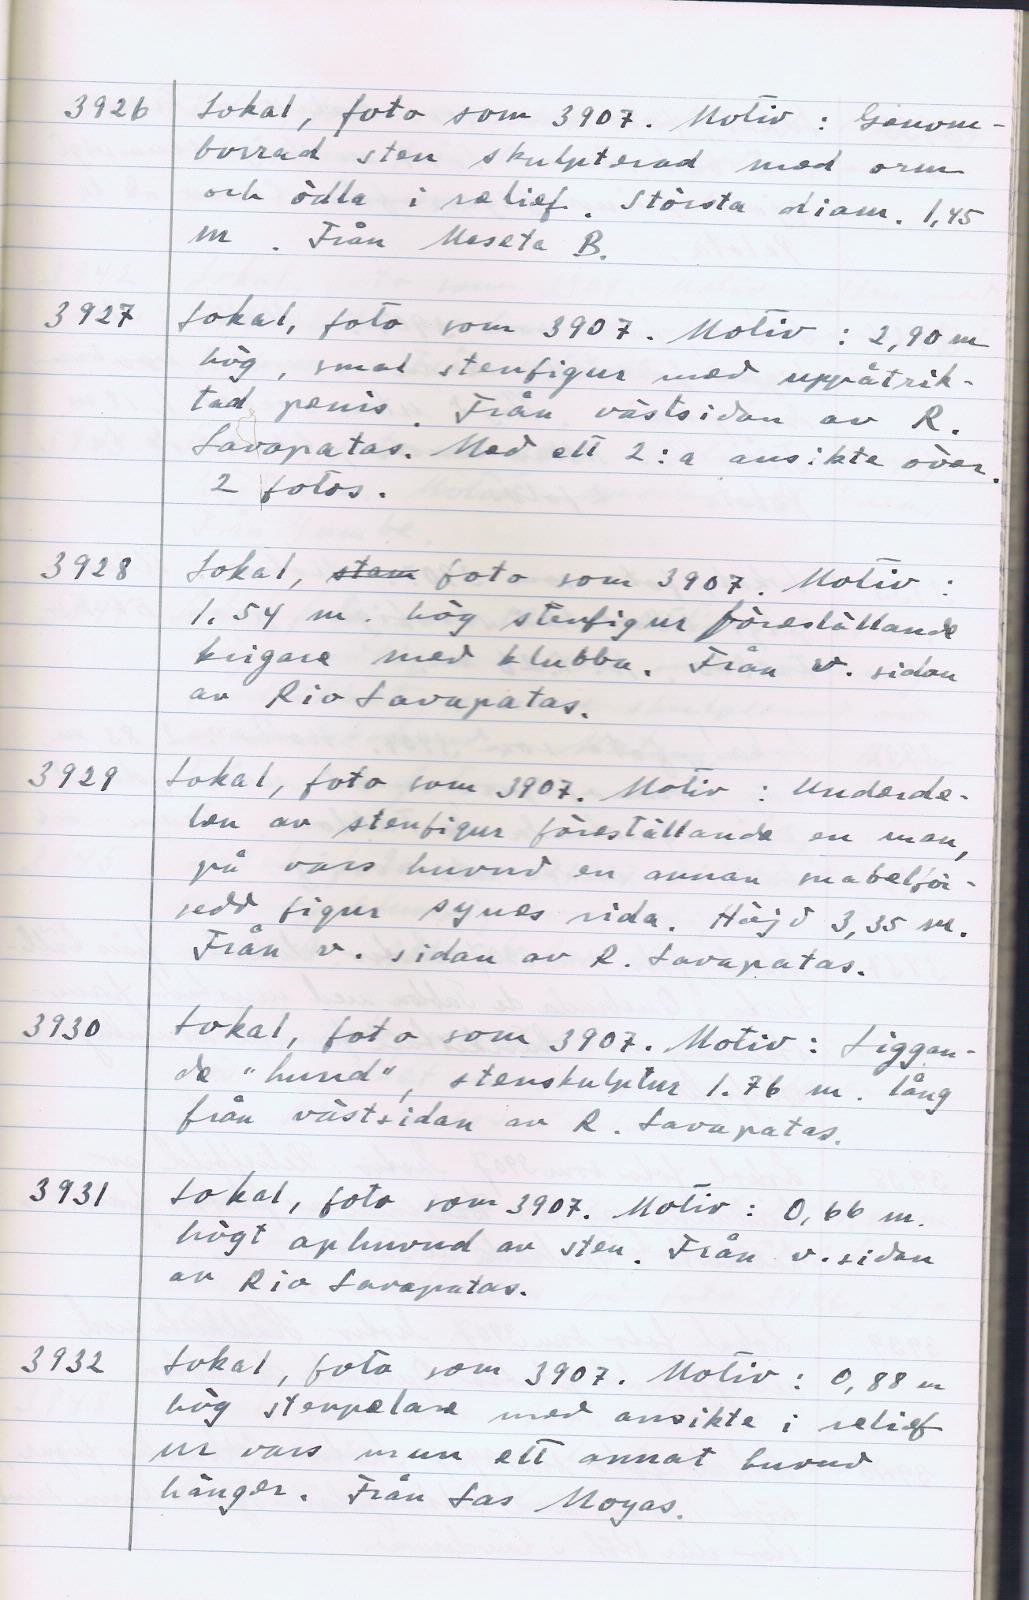 3926 Lokal, foto som 3907. Motiv : Genom-
borrad sten skulpterad med orm
och ödla i relief. Största diam. 1,45
m . Från Meseta B.
3927 Lokal, foto som 3907. Motiv : 2,90 m
hög, smal stenfigur med uppåtrik-
tad penis. Från västsidan av R.
Lavapatas. Med ett 2:a ansikte över.
2 fotos.
3928 Lokal, stam foto som 3907. Motiv :
1.54 m. hög stenfigur föreställande
krigare med klubba. Från v. sidan
av Rio Lavapatas.
3929 Lokal, foto som 3907. Motiv : Underde-
len av stenfigur föreställande en man,
på vars huvud en annan snabelför-
sedd figur synes rida. Höjd 3,35 m.
Från v. sidan av R. Lavapatas.
3930 Lokal, foto som 3907. Motiv : Liggan-
de "hund", stenskulptur 1.76 m. lång
från västsidan av R. Lavapatas.
3931 Lokal, foto som 3907. Motiv : 0,66 m.
högt aphuvud av sten. Från v. sidan
av Rio Lavapatas.
3932 Lokal, foto som 3907. Motiv : 0,88 m
hög stenpelare med ansikte i relief
ur vars mun ett annat huvud
hänger. Från Las Moyas.